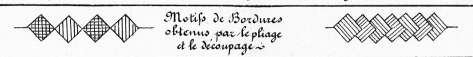 Motifs de Bordures
obtenus par le pliage
et le découpage